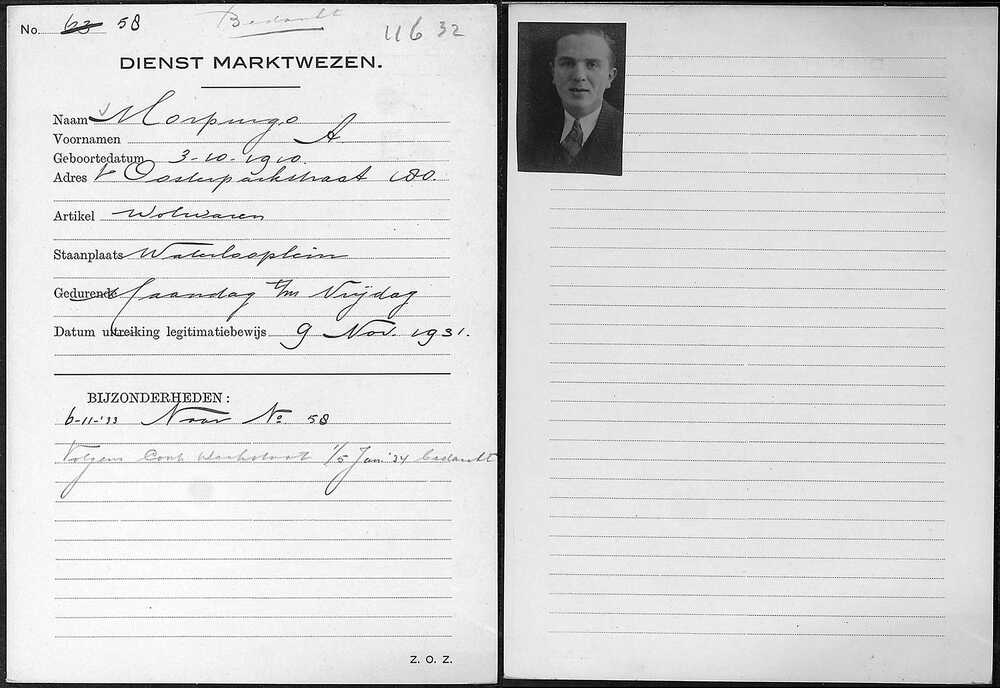 No. 63 58
Bedankt
U 6 32
DIENST MARKTWEZEN.
Naam Morpurgo
Voornamen A.
Geboortedatum 3-10-1910.
Adres Oosterparkstraat 180.
Artikel Wolwaren
Staanplaats Waterlooplein
Gedurende Maandag t/m Vrijdag
Datum uitreiking legitimatiebewijs 9 Nov. 1931.
BIJZONDERHEDEN:
6-11-'33 Naar No. 58
Volgens Cont 1/5 Jan. '34 bedankt
Z. O. Z.